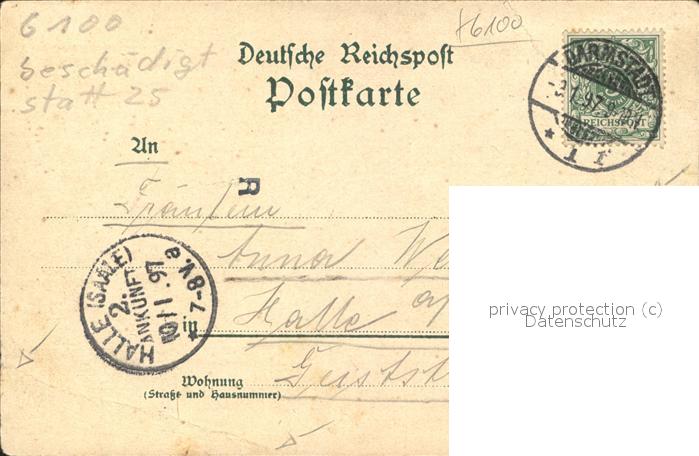 6100
beschädigt
statt 25
H6100
Deutsche Reichspost
Postkarte
DARMSTADT
97
REICHSPOST
* 1 *
An
R
Fräulein
Anna We
HALLE (SAALE)
2.
ANKUNFT
10/1
97.
* 7-8V. *
in
Halle
Wohnung
(Straße und Hausnummer)
Geistst
privacy protection (c)
Datenschutz